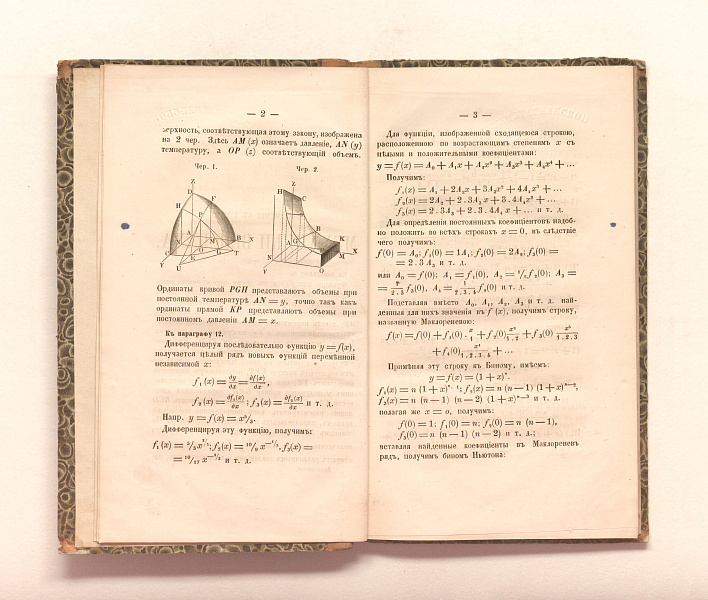 — 2 —
верхность, соотвѣтствующая этому закону, изображена
на 2 чер. Здѣсь AM (x) означаетъ давленіе, AN (y)
температуру, а OP (z) соотвѣтствующій объемъ.
Чер. 1. Чер. 2.
Ординаты кривой PGH представляютъ объемы при
постоянной температурѣ AN = y, точно такъ какъ
ординаты прямой KP представляютъ объемы при
постоянномъ давленіи AM = x.
Къ параграфу 12.
Дифференцируя послѣдовательно функцію y = f(x),
получается цѣлый рядъ новыхъ функцій перемѣнной
независимой x:
f₁ (x) = ∂y/∂x = ∂f(x)/∂x,
f₂ (x) = ∂f₁(x)/∂x ; f₃ (x) = ∂f₂(x)/∂x и т. д.
Напр. y = f(x) = x⁵/₃.
Дифференцируя эту функцію, получимъ:
f₁ (x) = ⁵/₃ x²/₃; f₂ (x) = ¹⁰/₉ x⁻¹/₃, f₃(x) =
= ¹⁰/₂₇ x⁻⁴/₃ и т. д.
— 3 —
Для функціи, изображенной сходящеюся строкою,
расположенною по возрастающимъ степенямъ x съ
цѣлыми и положительными коефиціентами:
y = f(x) = A₀ + A₁x + A₂x² + A₃x³ + A₄x⁴ + ...
Получимъ:
f₁(x) = A₁ + 2A₂x + 3A₃x² + 4A₄x³ + ...
f₂(x) = 2A₂ + 2 . 3A₃ x + 3. 4A₄x² + ...
f₃(x) = 2 . 3A₃ + 2 . 3 . 4A₄ x + ... и т. д.
Для опредѣленія постоянныхъ коефиціентовъ надоб-
но положить во всѣхъ строкахъ x = 0, въ слѣдствіе
чего получимъ:
f(0) = A₀; f₁(0) = 1A₁; f₂(0) = 2A₂; f₃(0) =
= 2 . 3A₃ и т. д.
или A₀ = f(0); A₁ = f₁(0), A₂ = ¹/₂ f₂(0); A₃ =
= 1/2.3 f₃(0), A₄ = 1/2.3.4 f₄(0) и т. д.
Подставляя вмѣсто A₀, A₁, A₂, A₃ и т. д. най-
денныя для нихъ значенія въ f (x), получимъ строку,
названную Маклореневою:
f(x) = f(0) + f₁(0) . x/1 + f₂(0) x²/1.2 + f₃(0) x³/1.2.3
+ f₄(0) x⁴/1.2.3.4 + ...
Примѣняя эту строку къ Биному, имѣемъ:
y = f(x) = (1 + x)ⁿ.
f₁(x) = n (1 + x)ⁿ⁻¹; f₂(x) = n (n — 1) (1 + x)ⁿ⁻²,
f₃(x) = n (n — 1) (n — 2) (1 + x)ⁿ⁻³ и т. д.
полагая же x = o, получимъ:
f(0) = 1; f₁(0) = n; f₂(0) = n (n — 1),
f₃(0) = n (n — 1) (n — 2) и т. д.;
вставляя найденные коефиціенты въ Маклореневъ
рядъ, получимъ биномъ Ньютона: